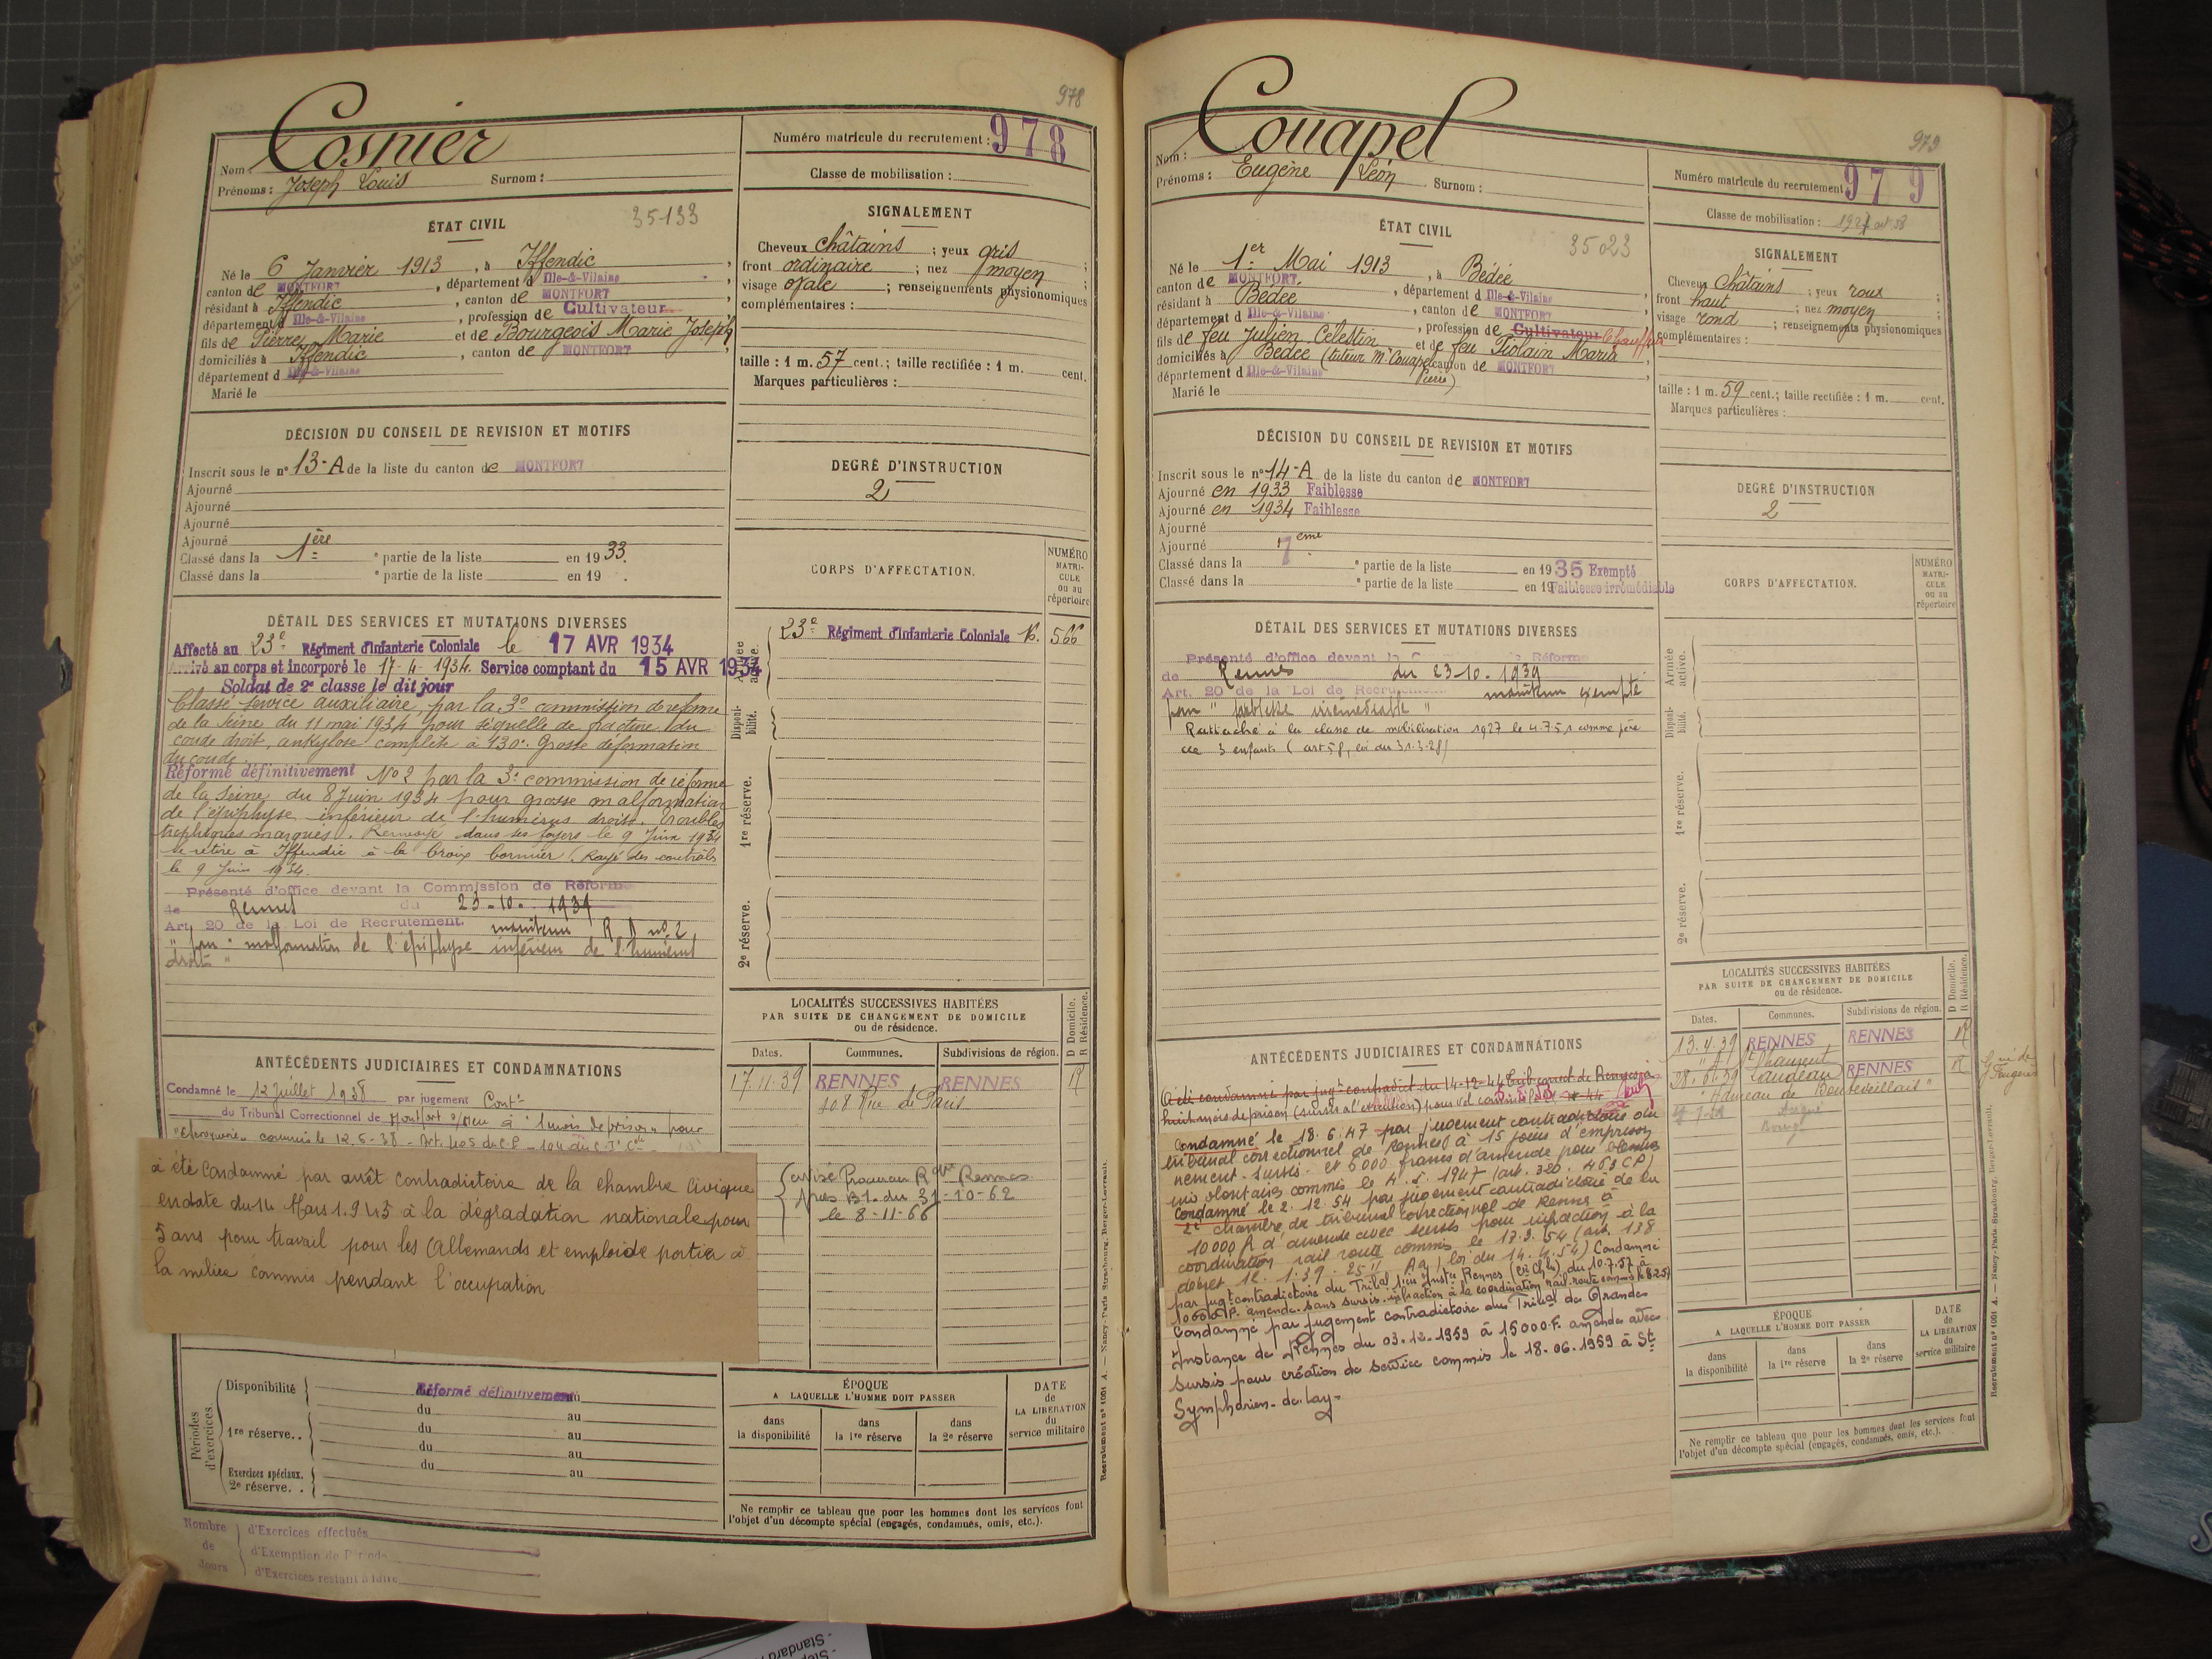 978
Nom : Cosnier
Prénoms : Joseph Louis Surnom :
Numéro matricule du recrutement : 978
Classe de mobilisation :
ÉTAT CIVIL
35-133
Né le 6 Janvier 1913, à Iffendic,
canton de MONTFORT, département d Ille-&-Vilaine,
résidant à Iffendic, canton de MONTFORT,
département d Ille-&-Vilaine, profession de Cultivateur
fils de Pierre Marie et de Bourgeois Marie Joseph
domiciliés à Iffendic, canton de MONTFORT,
département d Ille-&-Vilaine
Marié le
SIGNALEMENT
Cheveux châtains ; yeux gris ;
front ordinaire ; nez moyen ;
visage ovale ; renseignements physionomiques
complémentaires :
taille : 1 m. 57 cent.; taille rectifiée : 1 m. cent.
Marques particulières :
DÉCISION DU CONSEIL DE REVISION ET MOTIFS
Inscrit sous le n° 13-A de la liste du canton de MONTFORT
Ajourné
Ajourné
Ajourné
Ajourné
Classé dans la 1ère e partie de la liste en 1933.
Classé dans la e partie de la liste en 19 .
DEGRÉ D'INSTRUCTION
2
CORPS D'AFFECTATION.
NUMÉRO MATRI-CULE ou au répertoire
Armée active.
23e Régiment d'Infanterie Coloniale 566
Disponi-bilité.
1re réserve.
2e réserve.
DÉTAIL DES SERVICES ET MUTATIONS DIVERSES
Affecté au 23e Régiment d'Infanterie Coloniale le 17 AVR 1934
Arrivé au corps et incorporé le 17-4-1934. Service comptant du 15 AVR 1934
Soldat de 2e classe le dit jour
Classé service auxiliaire par la 3e commission de réforme
de la Seine du 11 mai 1934 pour séquelle de fracture du
coude droit, ankylose complète à 130°. Grosse déformation
du coude.
Réformé définitivement N°2 par la 3e commission de réforme
de la Seine du 8 Juin 1934 pour grosse malformation
de l'épiphyse inférieur de l'humérus droit. Troubles
trophiques marqués. Renvoyé dans ses foyers le 9 Juin 1934
se retire à Iffendic à la Croix Cornier. Rayé des contrôles
le 9 Juin 1934.
Présenté d'office devant la Commission de Réforme
de Rennes du 23-10-1939
Art. 20 de la Loi de Recrutement. maintenu R D n° 2
pour "malformation de l'épiphyse inférieur de l'humérus
droit"
ANTÉCÉDENTS JUDICIAIRES ET CONDAMNATIONS
Condamné le 12 Juillet 1938 par jugement Contre
du Tribunal Correctionnel de Montfort s/Meu à 1 mois de prison pour
à été Condamné par arrêt contradictoire de la chambre Civique
en date du 14 Mars 1.945 à la dégradation nationale pour
5 ans pour travail pour les Allemands et emploi de portier à
la milice commis pendant l'occupation
LOCALITÉS SUCCESSIVES HABITÉES
PAR SUITE DE CHANGEMENT DE DOMICILE
ou de résidence.
D Domicile. R Résidence.
Dates. Communes. Subdivisions de région.
17.11.39 RENNES RENNES R
108 Rue de Paris
avisé Procureur Rque Rennes
après B1. du 31-10-62
le 8-11-66
Périodes d'exercices
Disponibilité Réformé définitivement au
du au
1re réserve.. du au
du au
Exercices spéciaux. du au
2e réserve. .
ÉPOQUE
A LAQUELLE L'HOMME DOIT PASSER
dans la disponibilité
dans la 1re réserve
dans la 2e réserve
DATE de LA LIBÉRATION du service militaire
Ne remplir ce tableau que pour les hommes dont les services font
l'objet d'un décompte spécial (engagés, condamnés, omis, etc.).
Nombre de Jours
d'Exercices effectués
d'Exemption de Période
d'Exercices restant à faire
Recrutement n° 1061 A. — Nancy-Paris-Strasbourg, Berger-Levrault.
979
Nom : Couapel
Prénoms : Eugène Léon Surnom :
Numéro matricule du recrutement 979
Classe de mobilisation : 1927
ÉTAT CIVIL
35023
Né le 1er Mai 1913, à Bédée
canton de MONTFORT, département d Ille-&-Vilaine,
résidant à Bédée, canton de MONTFORT,
département d Ille-&-Vilaine, profession de Cultivateur Chauffeur
fils de feu Julien Célestin et de feu Piolain Maria
domiciliés à Bédée (tuteur Mr Couapel Pierre) canton de MONTFORT,
département d Ille-&-Vilaine
Marié le
SIGNALEMENT
Cheveux Châtains ; yeux roux ;
front haut ; nez moyen ;
visage rond ; renseignements physionomiques
complémentaires :
taille : 1 m. 59 cent.; taille rectifiée : 1 m. cent.
Marques particulières :
DÉCISION DU CONSEIL DE REVISION ET MOTIFS
Inscrit sous le n° 14-A de la liste du canton de MONTFORT
Ajourné en 1933 Faiblesse
Ajourné en 1934 Faiblesse
Ajourné
Ajourné
Classé dans la 7ème e partie de la liste en 1935 Exempté
Classé dans la e partie de la liste en 19 Faiblesse irrémédiable
DEGRÉ D'INSTRUCTION
2
CORPS D'AFFECTATION.
NUMÉRO MATRI-CULE ou au répertoire
Armée active.
Disponi-bilité.
1re réserve.
2e réserve.
DÉTAIL DES SERVICES ET MUTATIONS DIVERSES
Présenté d'office devant la Réforme
de Rennes du 23-10-1939
Art. 20 de la Loi de Recrutement maintenu exempté
pour "faiblesse irrémédiable"
Rattaché à la classe de mobilisation 1927 le 4.7.51 comme père
de 3 enfants (art 58, loi du 31.3.28)
ANTÉCÉDENTS JUDICIAIRES ET CONDAMNATIONS
A été condamné par jugt contradict du 14-12-44 Trib correct de Rennes à
huit mois de prison (sursis à l'exécution) pour vol
Condamné le 18.6.47 par jugement contradictoire du
tribunal correctionnel de Rennes à 15 jours d'emprison
nement. sursis. et 5000 francs d'amende pour
commis le 4.5.1947 (art. 320. 463 CP)
Condamné le 2.12.54 par jugement contradictoire de la
2e chambre de tribunal correctionnel de Rennes à
10000 fr d'amende avec sursis pour infraction à la
coordination rail route commis le 17.3.54 (art. 138
décret 12.1.39 loi du 14.4.54) Condamné
par jugt contradictoire du Tribal 1ère Instce Rennes du 10.7.57 à
amende sans sursis. infraction à la coordination rail-route commis le
Condamné par jugement contradictoire du Tribal de Grande
Instance de Rennes du 03.12.1959 à 15000F. amende avec
sursis pour création de service commis le 18.06.1959 à St
Symphorien-de-Lay-
LOCALITÉS SUCCESSIVES HABITÉES
PAR SUITE DE CHANGEMENT DE DOMICILE
ou de résidence.
D Domicile. R Résidence.
Dates. Communes. Subdivisions de région.
13.4.39 RENNES RENNES R
RENNES R
ÉPOQUE
A LAQUELLE L'HOMME DOIT PASSER
dans la disponibilité
dans la 1re réserve
dans la 2e réserve
DATE de LA LIBÉRATION du service militaire
Ne remplir ce tableau que pour les hommes dont les services font
l'objet d'un décompte spécial (engagés, condamnés, omis, etc.).
Recrutement n° 1061 A. — Nancy-Paris-Strasbourg, Berger-Levrault.